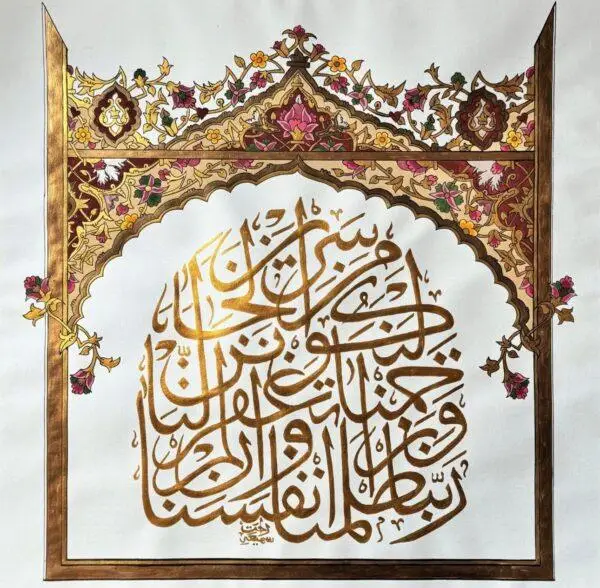 ربنا ظلمنا انفسنا
وان لم تغفر لنا
وترحمنا لنكونن
من الخسرين